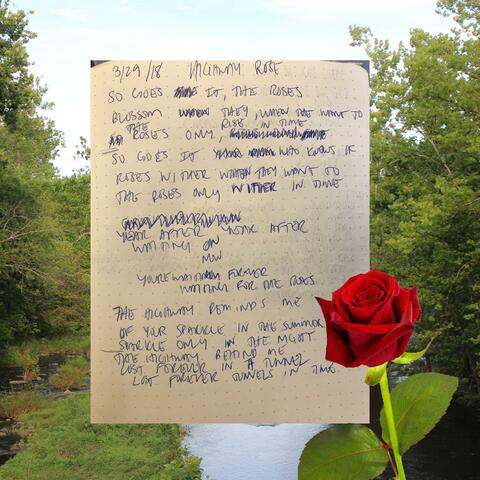 3/29/18 HIGHWAY ROSE
SO GOES IT, THE ROSES
BLOSSOM WHEN THEY, WHEN THE WANT TO
THE ROSES ONLY, RISE IN TIME
SO GOES IT WHO KNOWS IF
ROSES WITHER WHEN THEY WANT TO
THE ROSES ONLY WITHER IN TIME
YEAR AFTER YEAR AFTER
WAITING ON
NOW
YOURE WAITING FOREVER
WAITING FOR THE ROSES
THE HIGHWAY REMINDS ME
OF YOUR SPARKLE IN THE SUMMER
SPARKLE ONLY IN THE NIGHT
THE HIGHWAY BEHIND ME
LOST FOREVER IN A TUNNEL
LOST FOREVER TUNNELS IN TIME